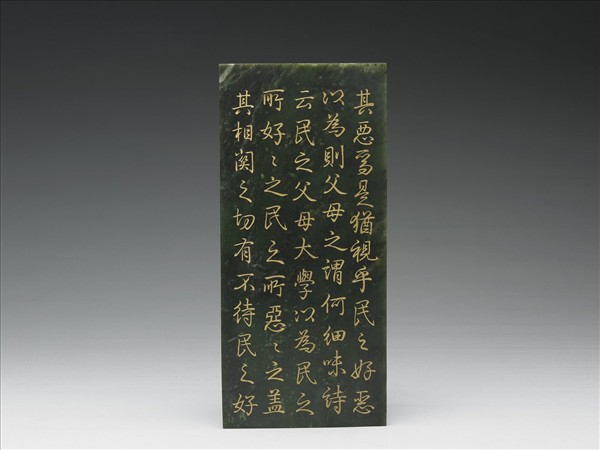 其惡焉是猶視乎民之好惡
以為則父母之謂何細味詩
云民之父母大學以為民之
所好〻之民之所惡〻之盖
其相関之切有不待民之好